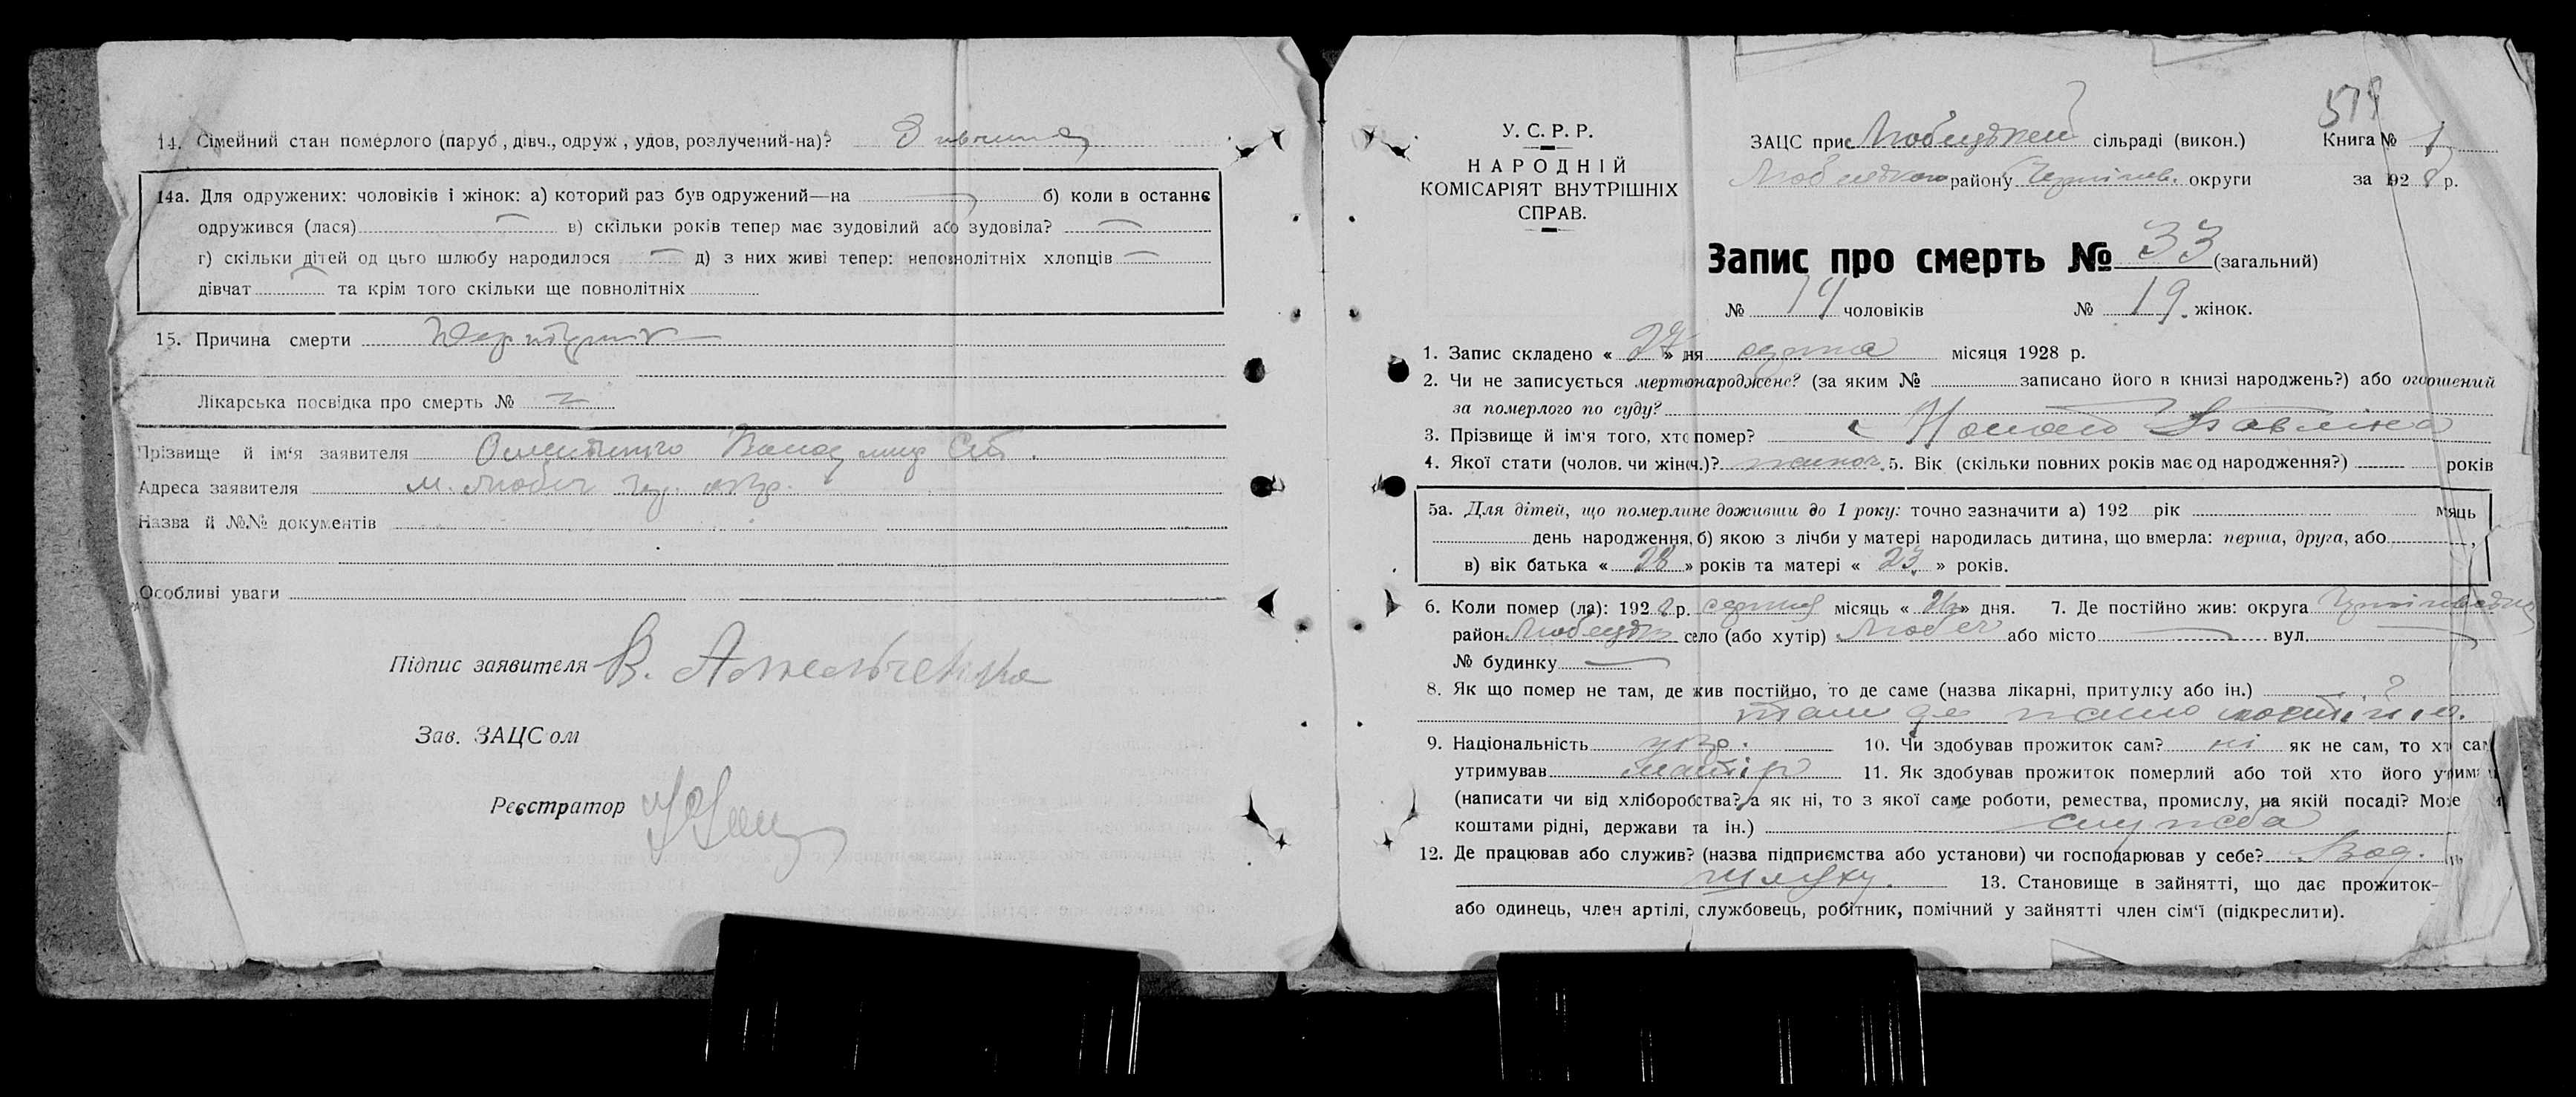 14. Сімейний стан померлого (паруб, дівч., одруж, удов, розлучений-на)?
14а. Для одружених: чоловіків і жінок: а) которий раз був одружений—на б) коли в останнє
одружився (лася) в) скільки років тепер має зудовілий або зудовіла?
г) скільки дітей од цього шлюбу народилося д) з них живі тепер: неповнолітніх хлопців
дівчат та крім того скільки ще повнолітніх
15. Причина смерти
Лікарська посвідка про смерть №
Прізвище й ім'я заявителя
Адреса заявителя м. Любеч
Назва й №№ документів
Особливі уваги
Підпис заявителя В.
Зав. ЗАЦСом
Реєстратор
519
У. С. Р. Р.
НАРОДНІЙ
КОМІСАРІЯТ ВНУТРІШНІХ
СПРАВ.
ЗАЦС при Любецькій сільраді (викон.) Книга № 1
Любецького району Чернігів. округи за 1928 р.
Запис про смерть № 33 (загальний)
№ 14 чоловіків № 19. жінок.
1. Запис складено « 27 » дня серпня місяця 1928 р.
2. Чи не записується мертвонароджене? (за яким № записано його в книзі народжень?) або оголошений
за померлого по суду?
3. Прізвище й ім'я того, хто помер? Павліна
4. Якої стати (чолов. чи жіноч.)? жіноч. 5. Вік (скільки повних років має од народження?) років
5а. Для дітей, що померли не доживши до 1 року: точно зазначити а) 192 рік м'яць
день народження, б) якою з лічби у матері народилась дитина, що вмерла: перша, друга, або ,
в) вік батька « 28 » років та матері « 23 » років.
6. Коли помер (ла): 1928 р. серпня місяць « » дня. 7. Де постійно жив: округа Чернігівська
район Любецьк село (або хутір) Любеч або місто вул.
№ будинку
8. Як що помер не там, де жив постійно, то де саме (назва лікарні, притулку або ін.)
там де жило постійно.
9. Національність укр. 10. Чи здобував прожиток сам? ні як не сам, то хт сам
утримував 11. Як здобував прожиток померлий або той хто його утрим
(написати чи від хліборобства? а як ні, то з якої саме роботи, ремества, промислу, на якій посаді? Може
коштами рідні, держави та ін.) служба
12. Де працював або служив? (назва підприємства або установи) чи господарював у себе? Вод.
шляху. 13. Становище в зайнятті, що дає прожиток-
або одинець, член артілі, службовець, робітник, помічний у зайнятті член сім'ї (підкреслити).